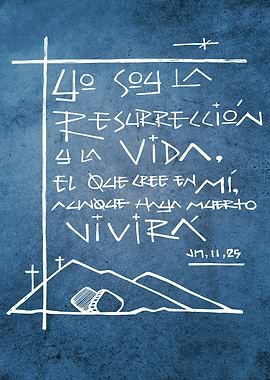 Yo soy la
Resurrección
y la vida,
el que cree en mí,
aunque haya muerto
vivirá
Jn, 11, 25